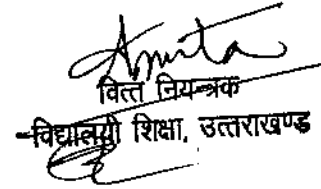 Amrita
वित्त नियन्त्रक
विद्यालयी शिक्षा, उत्तराखण्ड